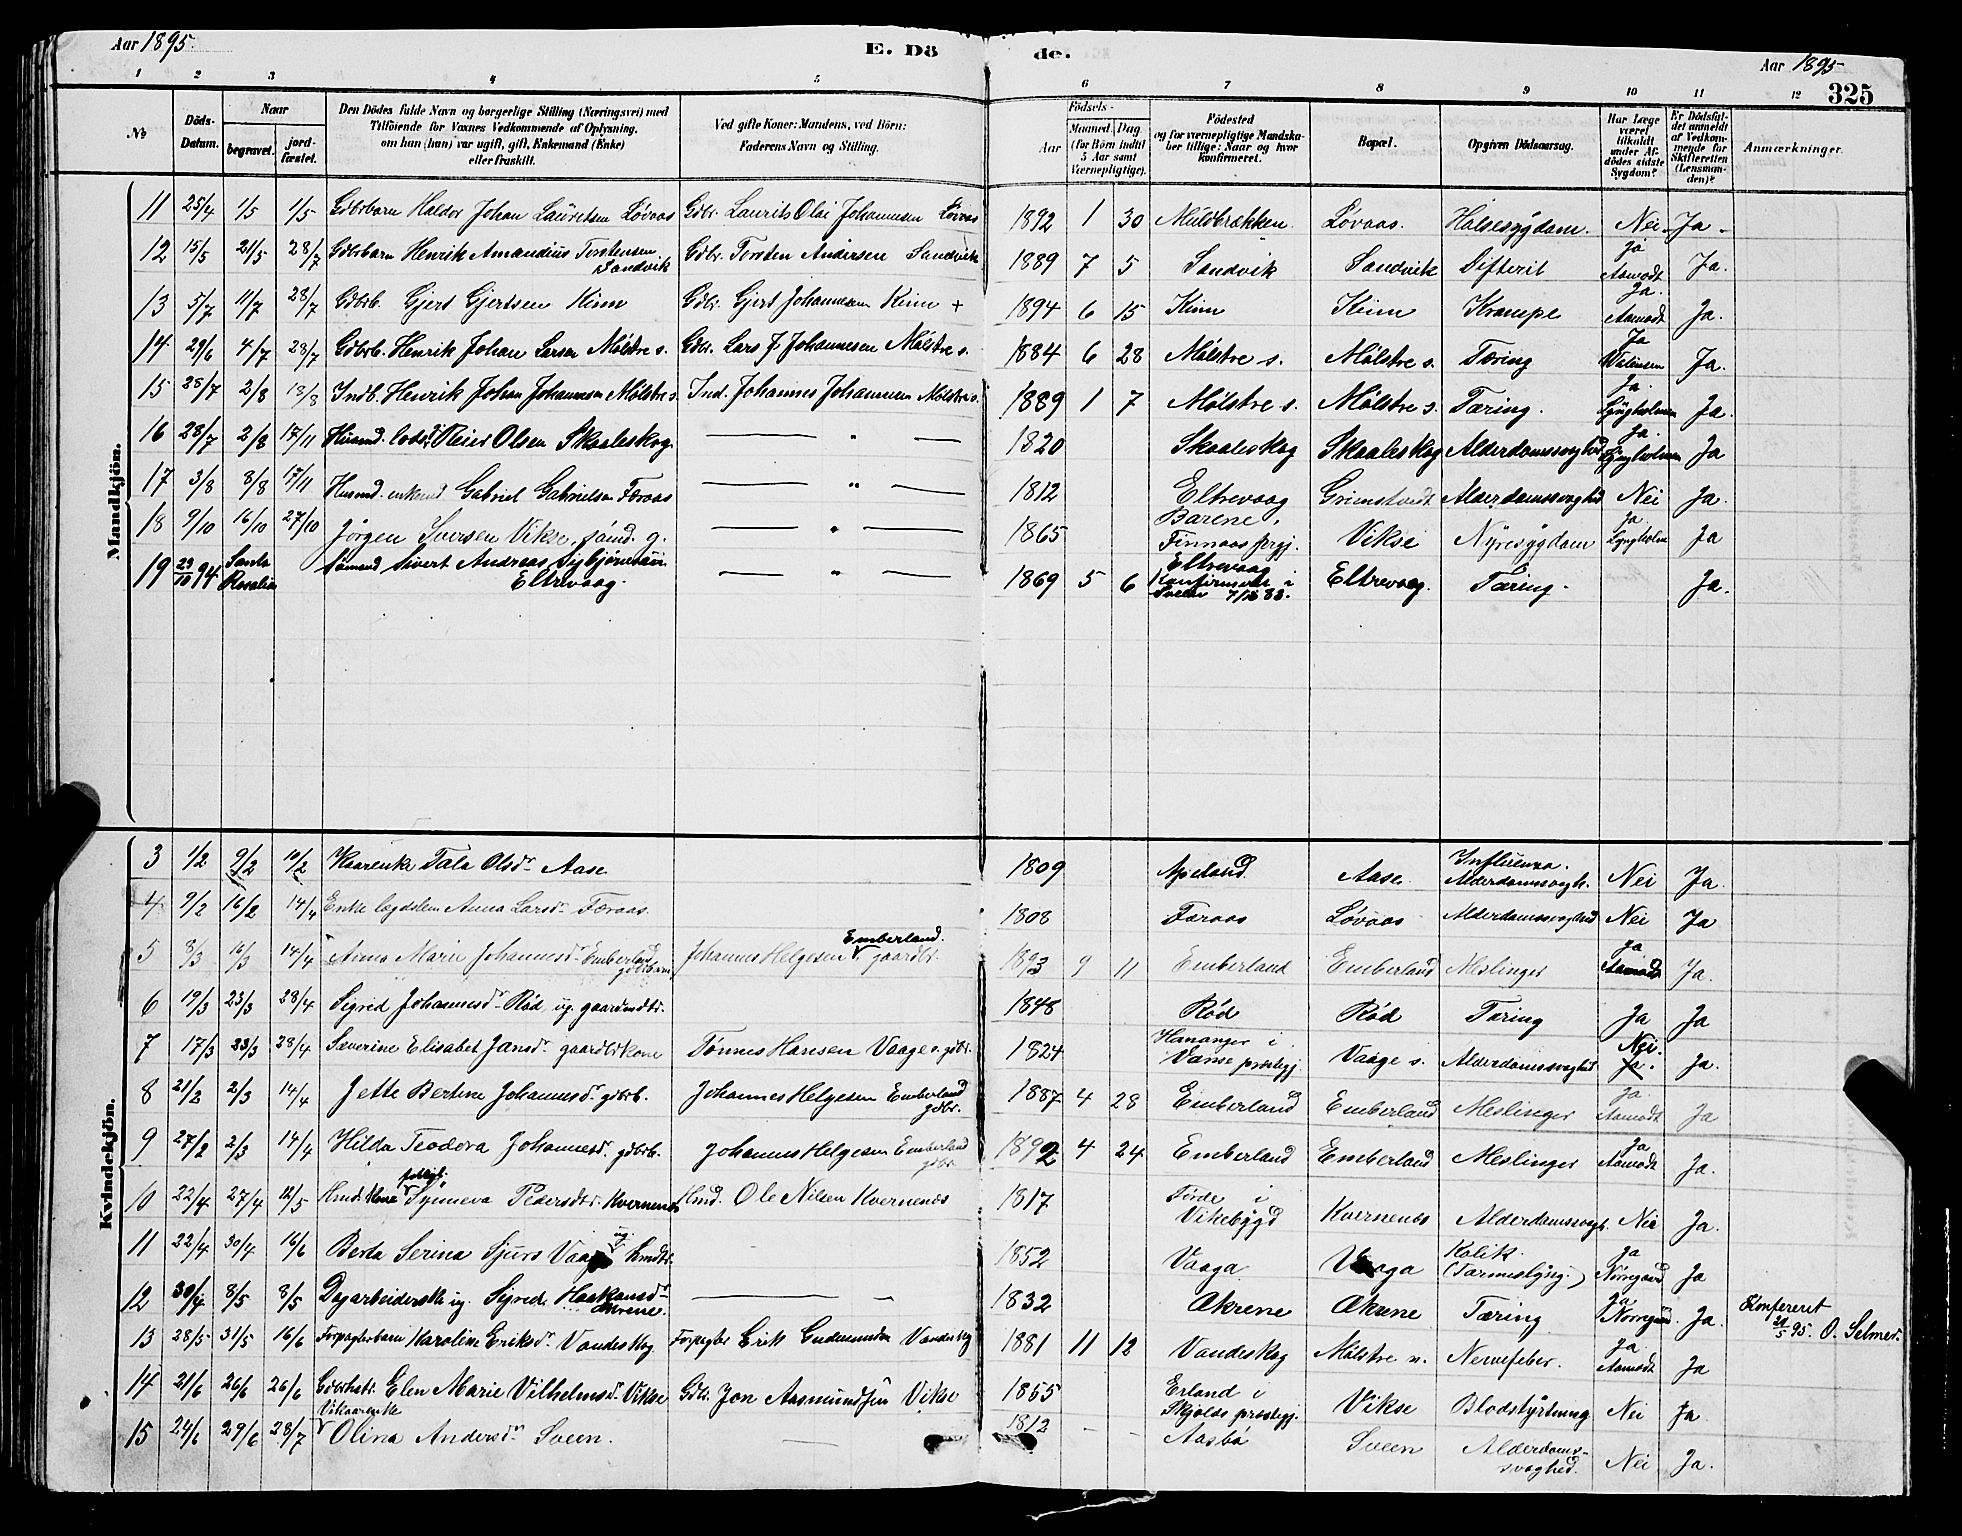 Aar 1895. E. Dö de. Aar 1895
325
1 2 3 4 5 6 7 8 9 10 11 12
№ Döds-Datum. Naar begravet. jordfæstet. Den Dödes fulde Navn og borgerlige Stilling (Næringsvei) med Tilföiende for Voxnes Vedkommende af Oplysning, om han (hun) var ugift, gift, Enkemand (Enke) eller fraskilt. Ved gifte Koner: Mandens, ved Börn: Faderens Navn og Stilling. Födsels- Aar Maaned. Dag. (for Börn indtil 5 Aar samt Værnepligtige). Födested og for værnepligtige Mandskaber tillige: Naar og hvor Konfirmeret. Bopæl. Opgiven Dödsaarsag. Har Læge været tilkaldt under Afdödes sidste Sygdom? Er Dödsfaldet anmeldt af Vedkommende for Skifteretten (Lensmanden)? Anmærkninger.
Mandkjön.
11 25/4 1/5 1/5 Gdbrbarn Haldor Johan Lauritsen Løvaas Gdbr. Laurits Olai Johannesen Løvaas 1892 1 30 Muldbrækken Løvaas. Halssygdom. Nei - Ja -
12 15/5 21/5 28/7 Gdbrbarn Henrik Amandius Torstensen Sandvik Gdbr. Torsten Andersen Sandvik 1889 7 5 Sandvik Sandvik Difterit Ja Aamodt Ja.
13 5/7 11/7 28/7 Gdbrb. Gjert Gjertsen Kinn Gdbr. Gjert Johannesen Kinn + 1894 6 15 Kinn Kinn Krampe Ja. Aamodt Ja.
14 29/6 4/7 28/7 Gdbrb. Henrik Johan Larsen Mølstre s. Gdbr. Lars J Johannesen Mølstre s. 1884 6 28 Mølstre s. Mølstre s. Tæring Ja Ja.
15 28/7 2/8 18/8 Indb. Henrik Johan Johannesen Mølstre s. Ind. Johannes Johannesen Mølstre s. 1889 1 7 Mølstre s. Mølstre s. Tæring. Ja. Lyngholmen Ja.
16 28/7 2/8 17/11 Husmd. Reier Olsen Skaaleskog. — " — 1820 Skaaleskog Skaaleskog Alderdomssvaghed Ja. Lyngholmen Ja
17 3/8 8/8 17/11 Husmd. enkemd Gabriel Gabrielsen Færaas — " — 1812 Eltrevaag Grimstvedt Alderdomssvaghed Nei Ja.
18 9/10 16/10 27/10 Jørgen Iversen Vikse, sømd. g. — " — 1865 Barene, Finnaas prgj. Vikse Nyresygdom Ja Lyngholm Ja
19 23/10 94 Santa Rosalia Sømand Sivert Andreas Vigbjørnsen Eltrevaag. — " — 1869 5 6 Eltrevaag Konfirmeret i Sveen 7/10 83. Eltrevaag. Tæring. Ja.
Kvindekjön.
3 1/2 9/2 10/2 Kaarenke Tala Olsdr Aase 1809 Apeland Aase Influenza. Alderdomssvagh. Nei Ja.
4 9/2 16/2 14/4 Enke lægdslem Anna Larsdr Færaas. 1808 Færaas Løvaas Alderdomssvaghed Nei Ja
5 8/3 16/3 14/4 Anna Marie Johannesdr Emberland gdbrbarn Johannes Helgesen Emberland. gaardbr. 1893 9 11 Emberland Emberland Meslinger Ja Aamodt Ja.
6 19/3 23/3 28/4 Sigrid Johannesdr Rød ug. gaardmdtr. 1848 Rød Rød Tæring Ja Ja
7 17/3 23/3 28/4 Severine Elisabet Jansdr gaardbrkone Tønnes Hansen Vaage s. gdbr. 1824 Hananger i Vanse prestegj. Vaage s. Alderdomssvaghed Nei. Ja. Ja.
8 21/2 2/3 14/4 Jette Bertine Johannesdr gdbrb. Johannes Helgesen Emberland gdbr. 1887 4 28 Emberland Emberland Meslinger Ja. Aamodt Ja
9 27/2 2/3 14/4 Hilda Teodora Johannesdr. gdbrb. Johannes Helgesen Emberland gdbr 1892 4 24 Emberland Emberland Meslinger Ja Aamodt Ja.
10 22/4 27/4 12/5 Hmd. Kone Synneva Pedersdtr. Kvernenes Hmd. Ole Nilsen Kvernenes 1817 Førde i Vikebygd Kvernenes Alderdomssvagh. Nei Ja.
11 22/4 30/4 16/6 Berta Serina Sjurs Vaage ug. hmdtr. 1852 Vaaga Vaaga Kolik. (Tarmslyng.) Ja Nørregaard Ja
12 30/4 8/5 8/5 Dagarbeiderske ug. Sigred Haakonsdr Økrene. — — 1832 Økrene Økrene Tæring Ja Nørregaard Ja. Konfereret 29/5 95. O. Selmer.
13 28/5 31/5 16/6 Forpagterbarn Karoline Eriksdr. Vandeskog Forpagter Erik Gudmundsen Vandeskog 1881 11 12 Vandeskog Mølstre n. Nervefeber. Ja Aamodt Ja
14 21/6 26/6 26/6 Gdbrhstr. Elen Marie Vilhelmsdr. Vikse Gdbr. Jon Aasmundsen Vikse 1855 Erland i Skjolds prestegj. Vikse Blodstyrtning Nei Ja.
15 24/6 29/6 28/7 Vikaarenke Olina Andersdr. Sveen. — 1812 - - Aasbø Sveen Alderdomssvaghed. Nei Ja.